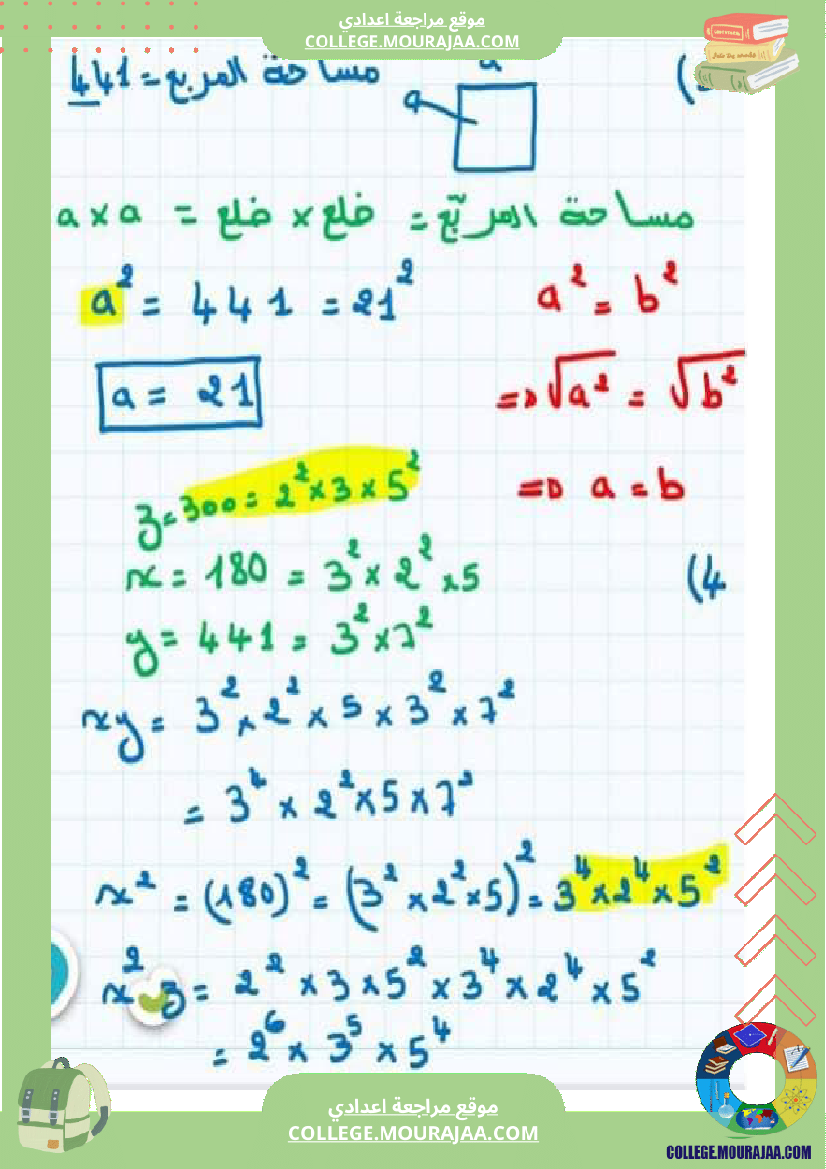 موقع مراجعة اعدادي
COLLEGE.MOURAJAA.COM
مساحة المربع = 441
a
a
مساحة المربّع = ضلع × ضلع = a × a
a² = 441 = 21²
a² = b²
a = 21
=> √a² = √b²
=> a = b
z = 300 = 2² × 3 × 5²
(4
x = 180 = 3² × 2² × 5
y = 441 = 3² × 7²
xy = 3² × 2² × 5 × 3² × 7²
= 3⁴ × 2² × 5 × 7²
x² = (180)² = (3² × 2² × 5)² = 3⁴ × 2⁴ × 5²
x² z = 2² × 3 × 5² × 3⁴ × 2⁴ × 5²
= 2⁶ × 3⁵ × 5⁴
موقع مراجعة اعدادي
COLLEGE.MOURAJAA.COM
COLLEGE.MOURAJAA.COM